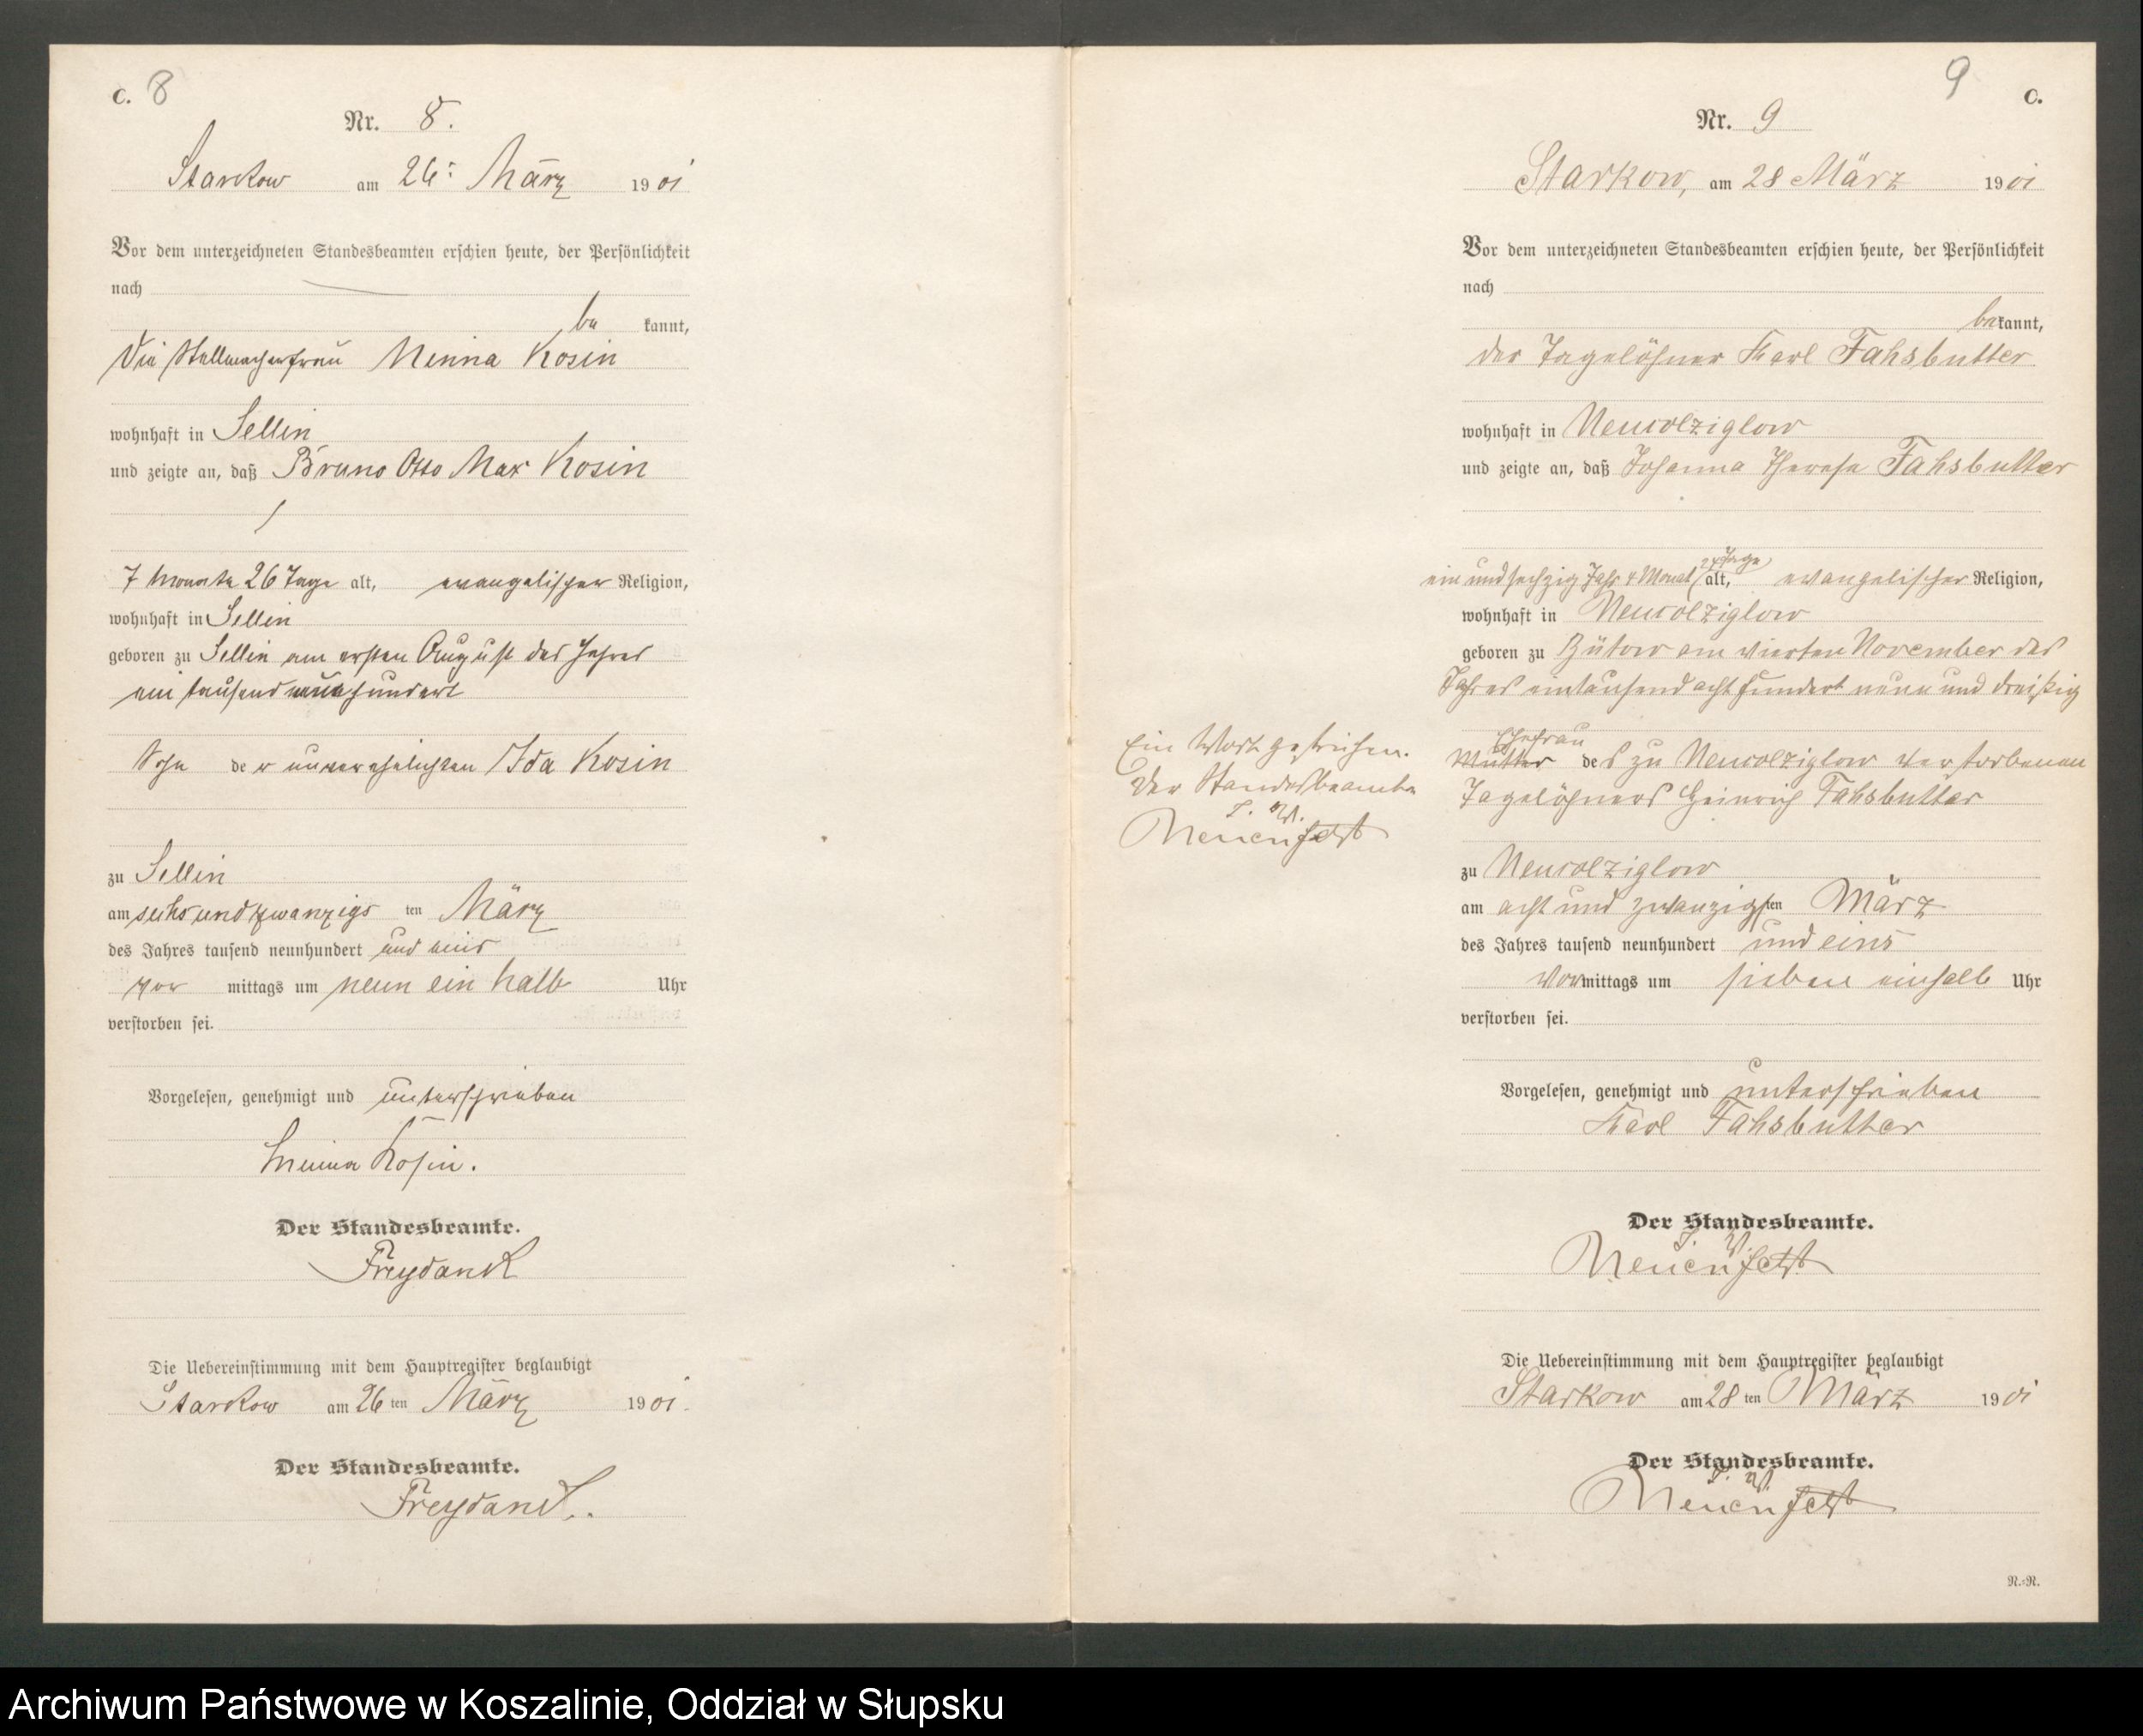 C. 8
Nr. 8.
Starkow am 26. März 1901
Vor dem unterzeichneten Standesbeamten erschien heute, der Persönlichkeit
nach
be kannt,
Die Stellmacherfrau Minna Kosin
wohnhaft in Sellin
und zeigte an, daß Bruno Otto Max Kosin
7 Monate 26 Tage alt, evangelischer Religion,
wohnhaft in Sellin
geboren zu Sellin am ersten August des Jahres
ein tausend neunhundert
Sohn der unverehelichten Ida Kosin
zu Sellin
am sechsundzwanzigs ten März
des Jahres tausend neunhundert und eins
vor mittags um neun ein halb Uhr
verstorben sei.
Vorgelesen, genehmigt und unterschrieben
Minna Kosin.
Der Standesbeamte.
Freydank
Die Uebereinstimmung mit dem Hauptregister beglaubigt
Starkow am 26 ten März 1901.
Der Standesbeamte.
Freydank.
9 C.
Nr. 9
Starkow, am 28 März 1901
Vor dem unterzeichneten Standesbeamten erschien heute, der Persönlichkeit
nach
bekannt,
der Tagelöhner Karl Fahsbutter
wohnhaft in Neuwolziglow
und zeigte an, daß Johanna Therese Fahsbutter
24 Tage
ein und sechzig Jahr 4 Monat alt, evangelischer Religion,
wohnhaft in Neuwolziglow
geboren zu Bütow am vierten November des
Jahres eintausend acht hundert neun und dreißig
Ehefrau
Mutter des zu Neuwolziglow verstorbenen
Tagelöhners Heinrich Fahsbutter
Ein Wort gestrichen.
Der Standesbeamte
I. V.
Neuenfeldt
zu Neuwolziglow
am acht und zwanzigsten März
des Jahres tausend neunhundert und eins
Vormittags um sieben einhalb Uhr
verstorben sei.
Vorgelesen, genehmigt und unterschrieben
Karl Fahsbutter
Der Standesbeamte.
I. V.
Neuenfeldt
Die Uebereinstimmung mit dem Hauptregister beglaubigt
Starkow am 28 ten März 1901
Der Standesbeamte.
I. V.
Neuenfeldt
N.=N.
Archiwum Państwowe w Koszalinie, Oddział w Słupsku